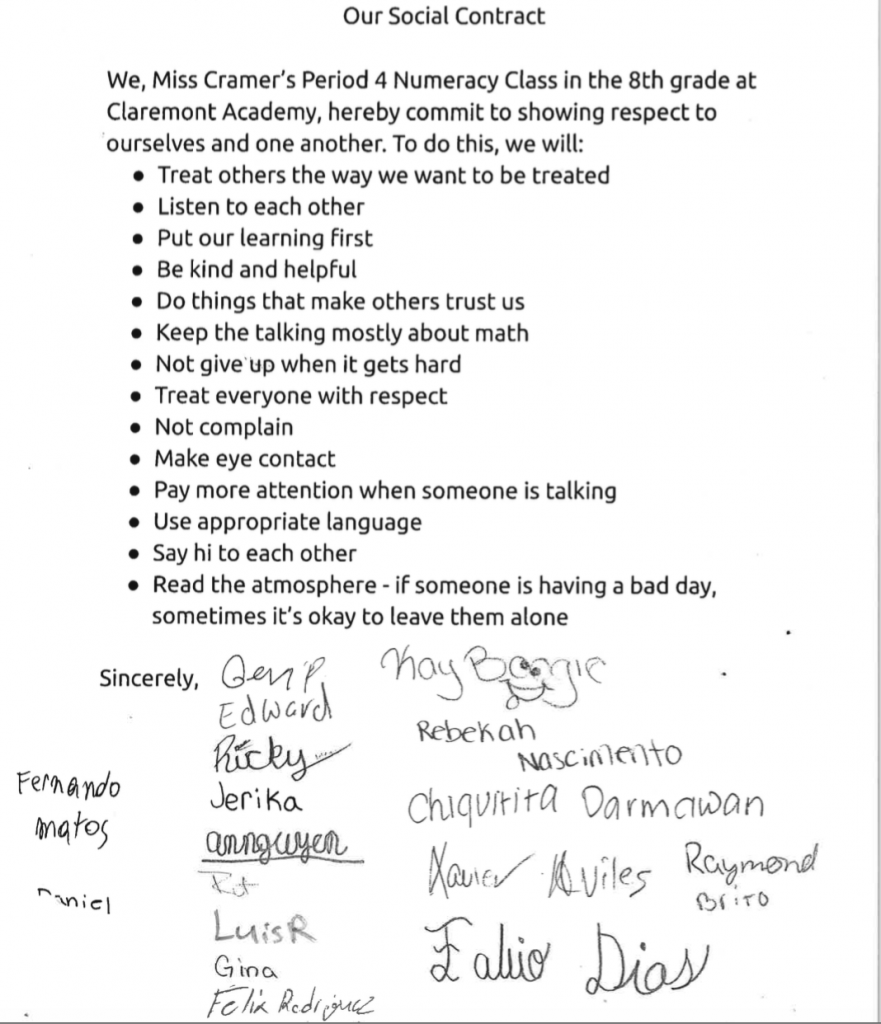 Our Social Contract
We, Miss Cramer's Period 4 Numeracy Class in the 8th grade at
Claremont Academy, hereby commit to showing respect to
ourselves and one another. To do this, we will:
● Treat others the way we want to be treated
● Listen to each other
● Put our learning first
● Be kind and helpful
● Do things that make others trust us
● Keep the talking mostly about math
● Not give up when it gets hard
● Treat everyone with respect
● Not complain
● Make eye contact
● Pay more attention when someone is talking
● Use appropriate language
● Say hi to each other
● Read the atmosphere - if someone is having a bad day,
sometimes it's okay to leave them alone
Sincerely,
Edward
Ricky
Jerika
annguyen
LuisR
Gina
Felix Rodriguez
Fernando
matos
Daniel
Kay Boogie
Rebekah
Nascimento
Chiquitita Darmawan
Xavier Aviles
Raymond
Brito
Fabio Dias